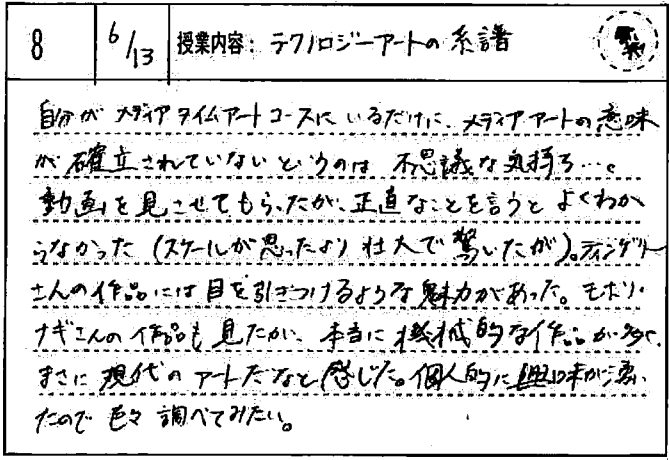 8 6/13 授業内容： テクノロジーアートの系譜
自分がメディアタイムアートコースにいるだけに、メディアアートの意味
が確立されていないというのは不思議な気持ち…。
動画を見させてもらったが、正直なことを言うとよくわか
らなかった（スケールが思ったより壮大で驚いたが）。ティンゲリー
さんの作品には目を引きつけるような魅力があった。モホリ・
ナギさんの作品も見たが、本当に機械的な作品が多く、
まさに現代のアートだなと感じた。個人的に興味が湧い
たので色々調べてみたい。